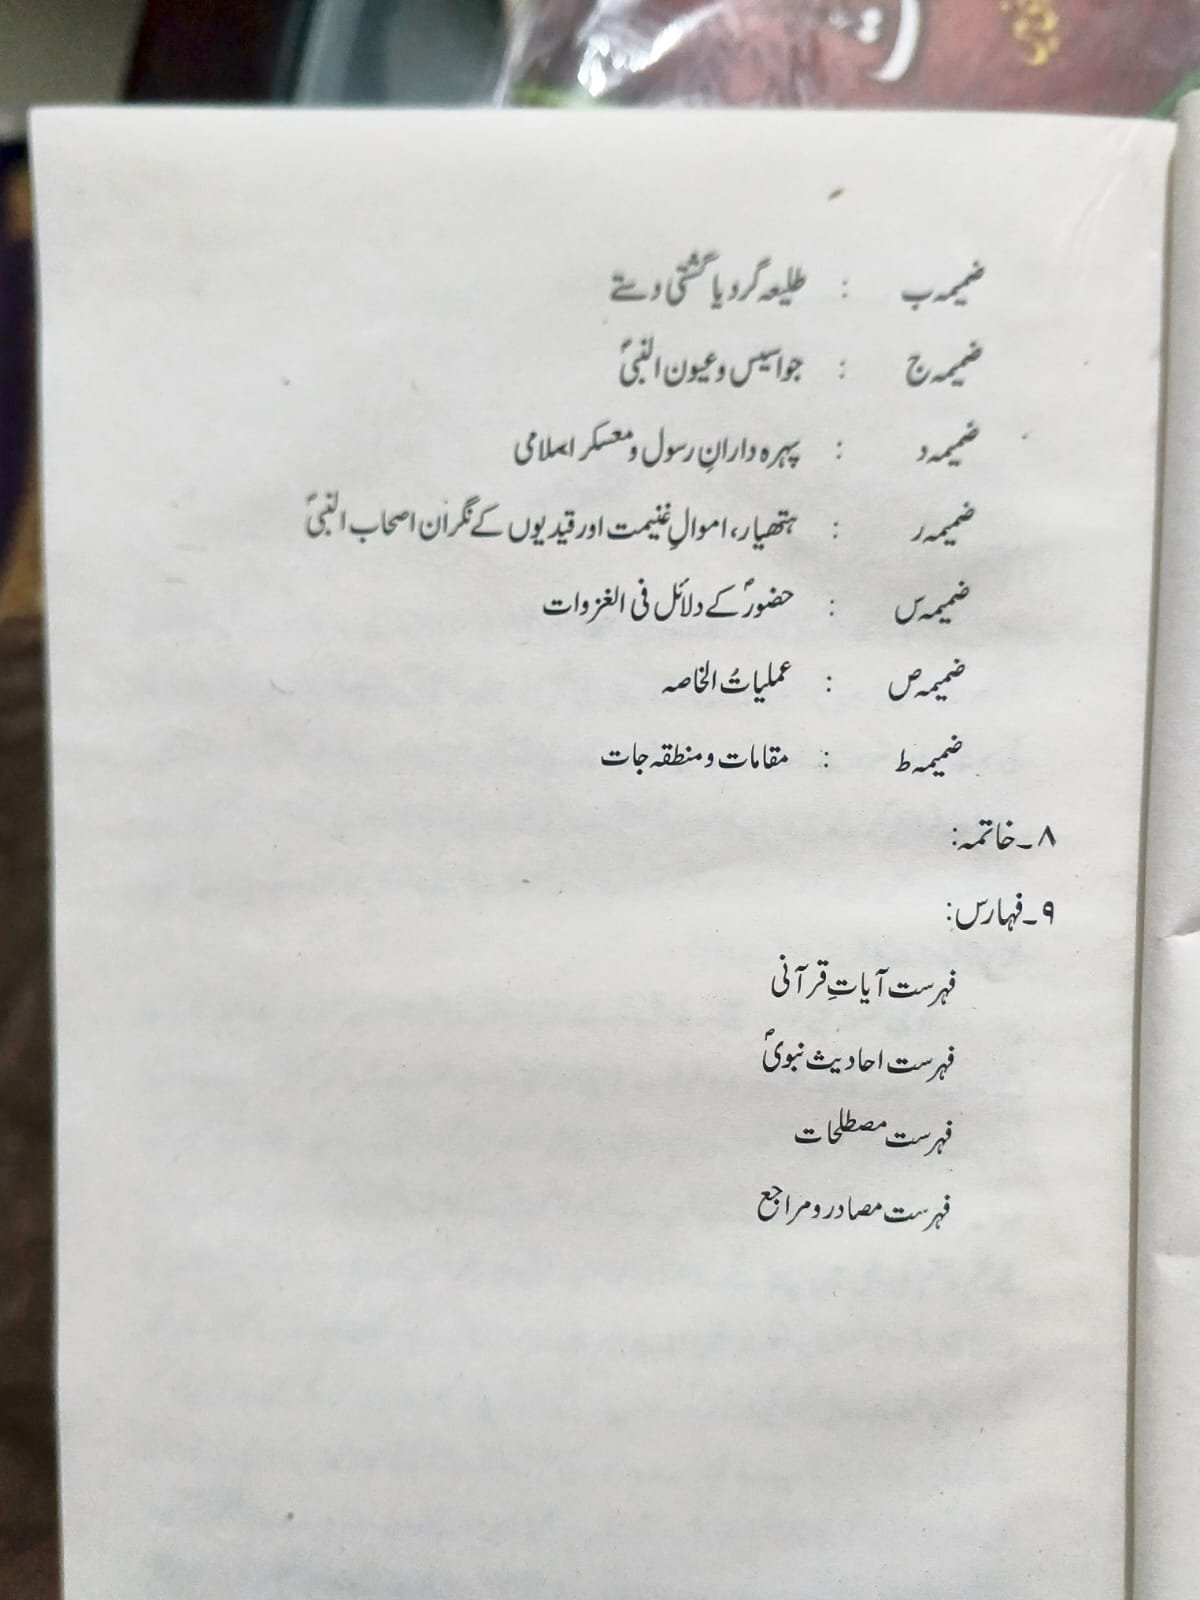 ضمیمہ ب : طلیعہ گرد یا گشتی دستے
ضمیمہ ج : جواسیس و عیون النبیؐ
ضمیمہ د : پہرہ دارانِ رسول و معسکر اسلامی
ضمیمہ ر : ہتھیار، اموالِ غنیمت اور قیدیوں کے نگران اصحاب النبیؐ
ضمیمہ س : حضورؐ کے دلائل فی الغزوات
ضمیمہ ص : عملیاتُ الخاصہ
ضمیمہ ط : مقامات و منطقہ جات
۸۔ خاتمہ:
۹۔ فہارس:
فہرست آیاتِ قرآنی
فہرست احادیث نبویؐ
فہرست مصطلحات
فہرست مصادر و مراجع